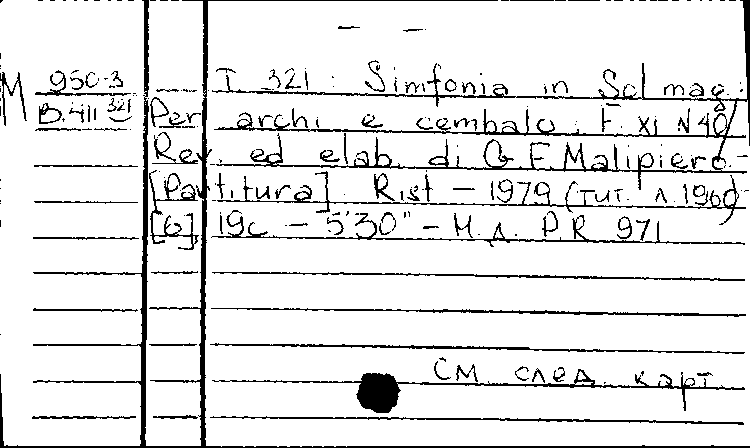 — —
М 950-3 T 321: Simfonia in Sol mag.:
В.411 321 Per archi e cembalo. F. XI N 40/
Rev. ed elab. di G. F. Malipiero.—
[Partitura]. Rist — 1979 (тит. л. 1960)
[6], 19 с — 5'30" — Н. д. P.R. 971
См след. карт.